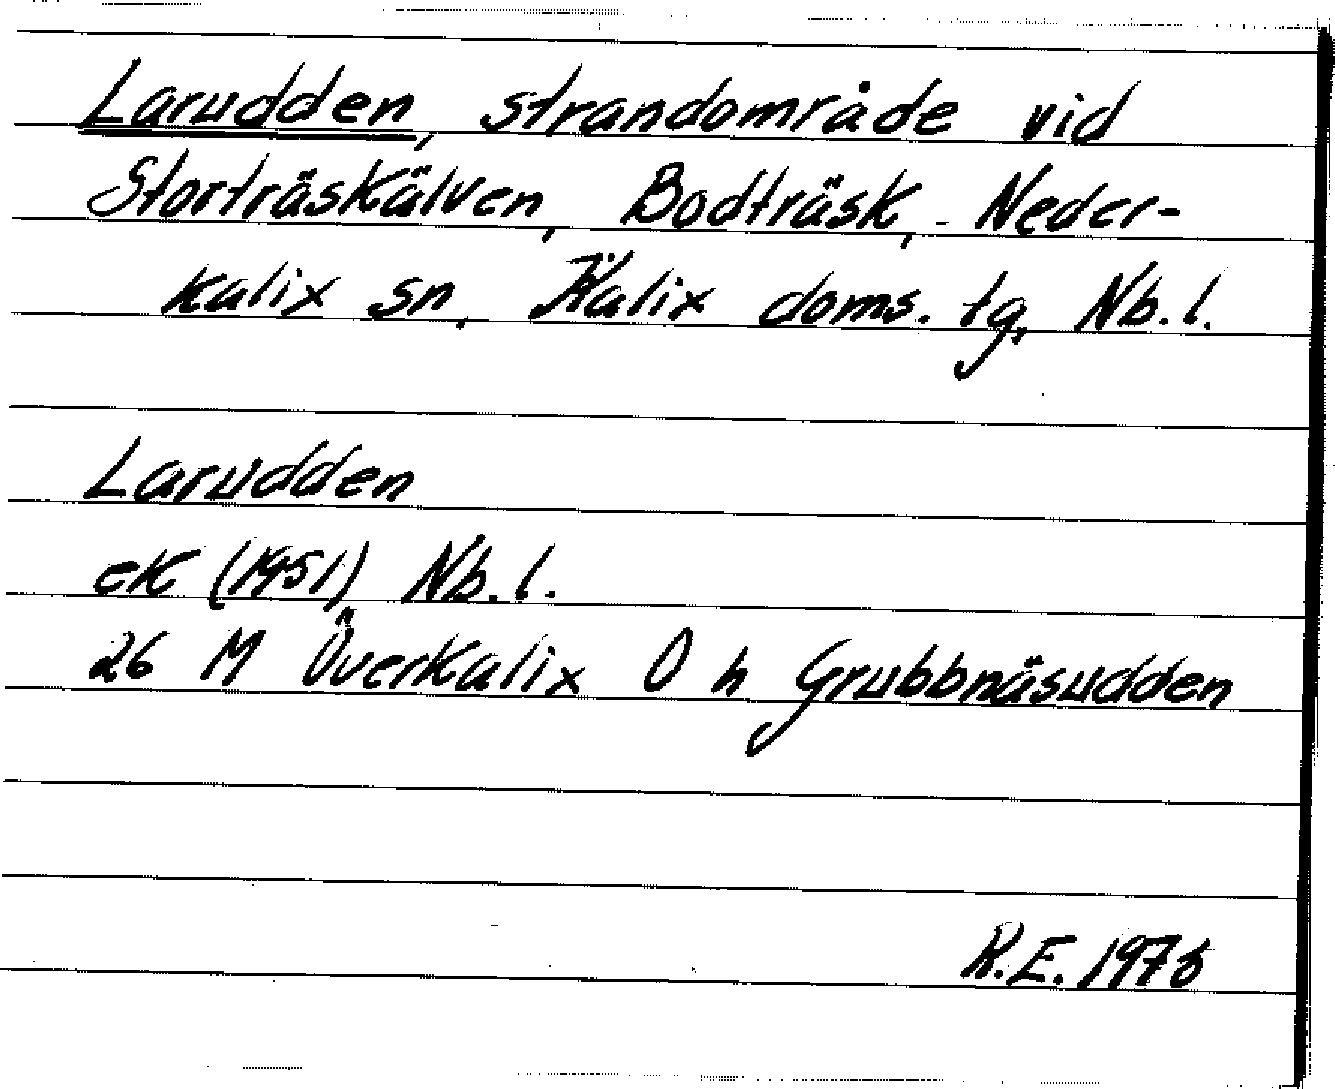 Larudden, strandområde vid
Storträskälven, Bodträsk, Neder-
kalix sn, Kalix doms. tg, Nb. l.
Larudden
ek (1951) Nb. l.
26 M Överkalix O h Grubbnäsudden
R.E.